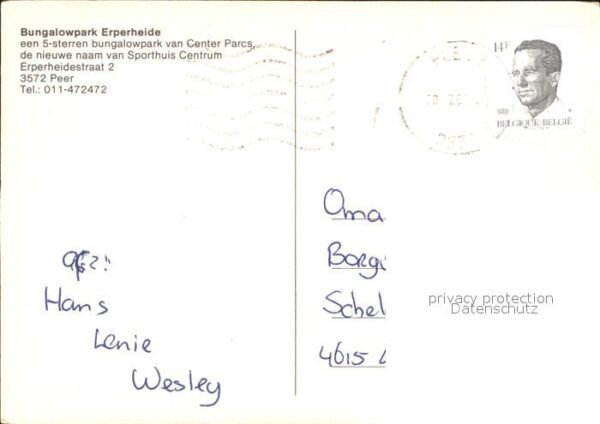 Bungalowpark Erperheide
een 5-sterren bungalowpark van Center Parcs,
de nieuwe naam van Sporthuis Centrum
Erperheidestraat 2
3572 Peer
Tel.: 011-472472
14F
BELGIQUE-BELGIË
Hans
Lenie
Wesley
Oma
Schel
4615
privacy protection
Datenschutz